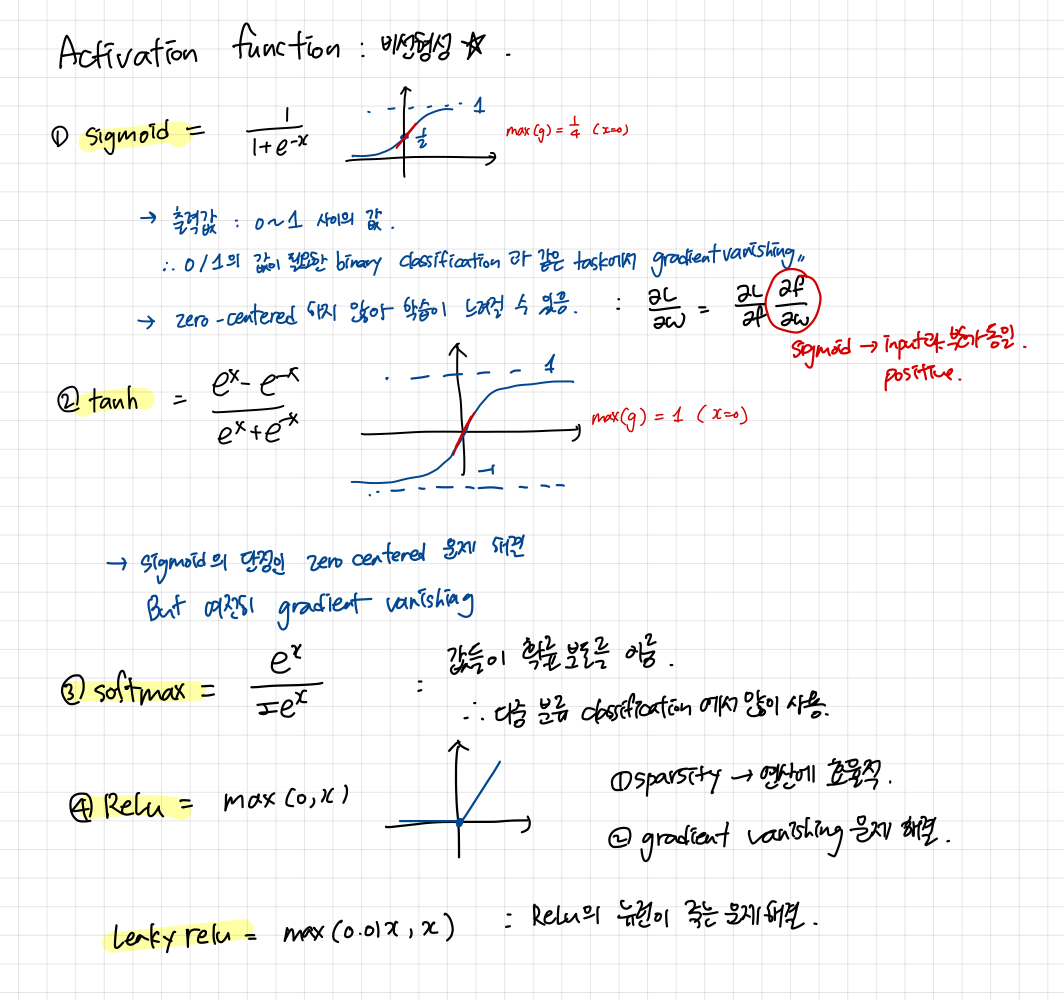 Activation function : 비선형성 ☆.
① sigmoid = 1 / (1 + e^-x)
1
1/2
max(g) = 1/4 (x=0)
→ 출력값 : 0~1 사이의 값.
∴ 0/1의 값이 필요한 binary classification 과 같은 task에서 gradient vanishing,,
→ zero-centered 되지 않아 학습이 느려질 수 있음. : ∂L/∂w = ∂L/∂f ∂f/∂w
sigmoid → input과 부호가 동일.
positive.
② tanh = (e^x - e^-x) / (e^x + e^-x)
1
-1
max(g) = 1 (x=0)
→ sigmoid의 단점인 zero centered 문제 해결
But 여전히 gradient vanishing
③ softmax = e^x / Σe^x : 값들이 확률 분포를 이룸.
∴ 다중 분류 classification 에서 많이 사용.
④ Relu = max(0,x)
① sparsity → 연산에 효율적.
② gradient vanishing 문제 해결.
Leaky relu = max(0.01x, x) : Relu의 뉴런이 죽는 문제 해결.